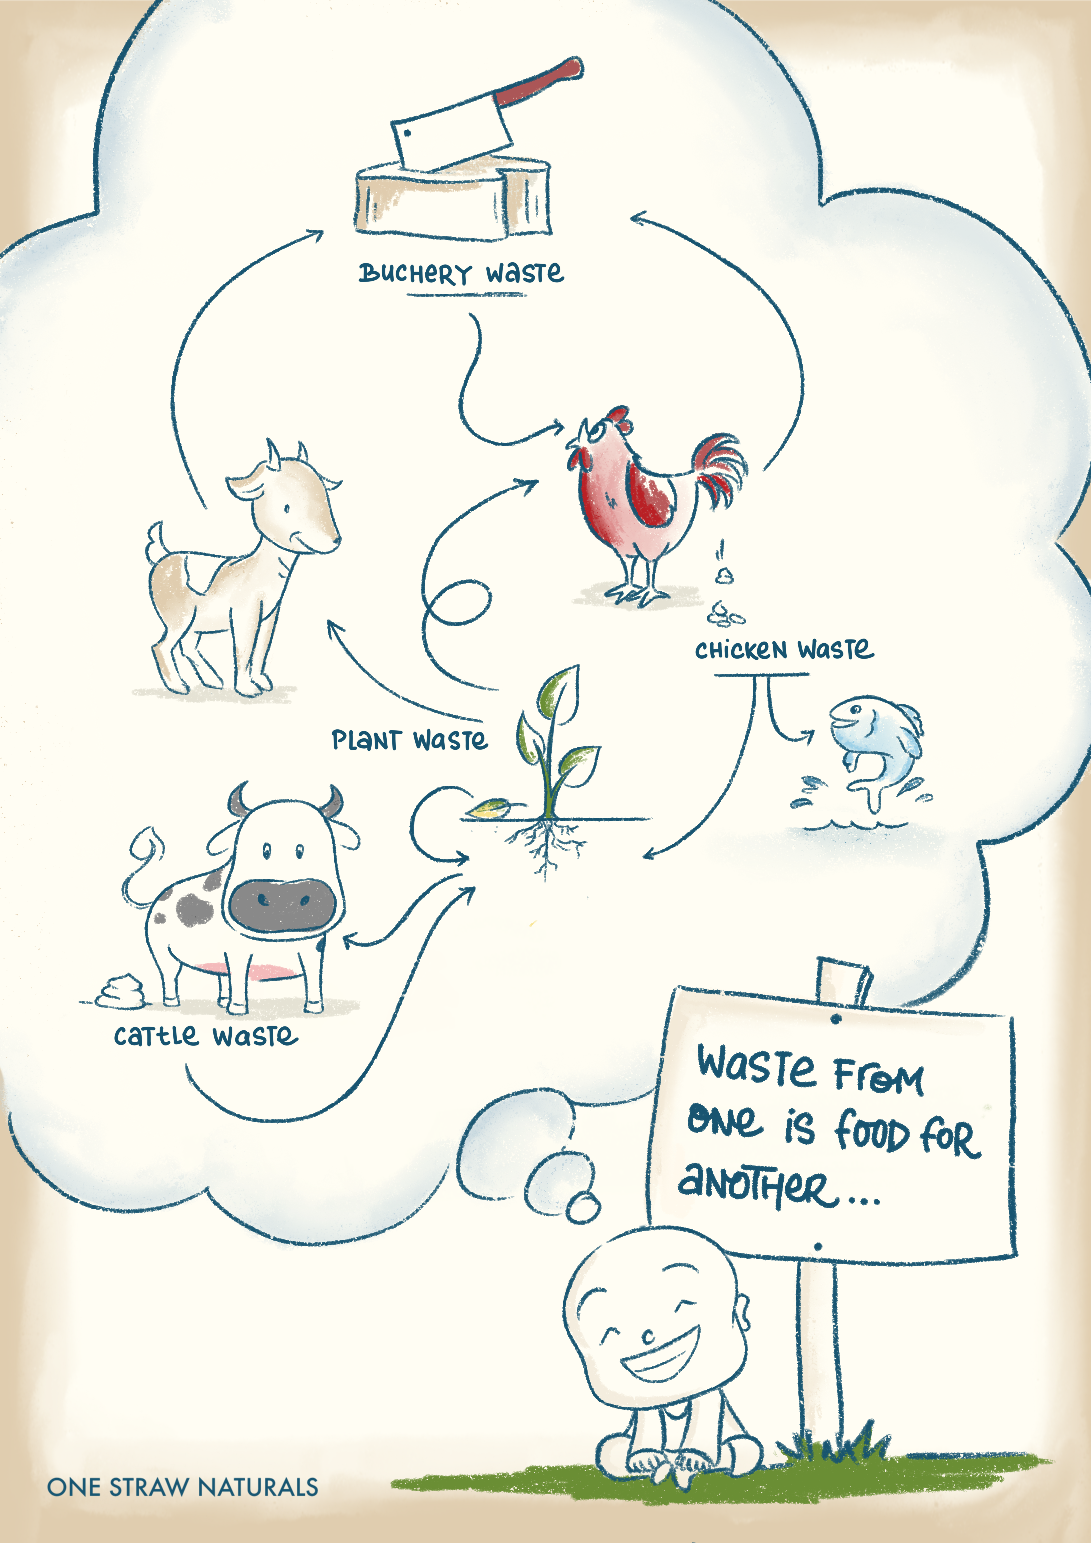 BUCHERY WASTE
CHICKEN WASTE
PLANT WASTE
CATTLE WASTE
WASTE FROM
ONE IS FOOD FOR
ANOTHER...
ONE STRAW NATURALS